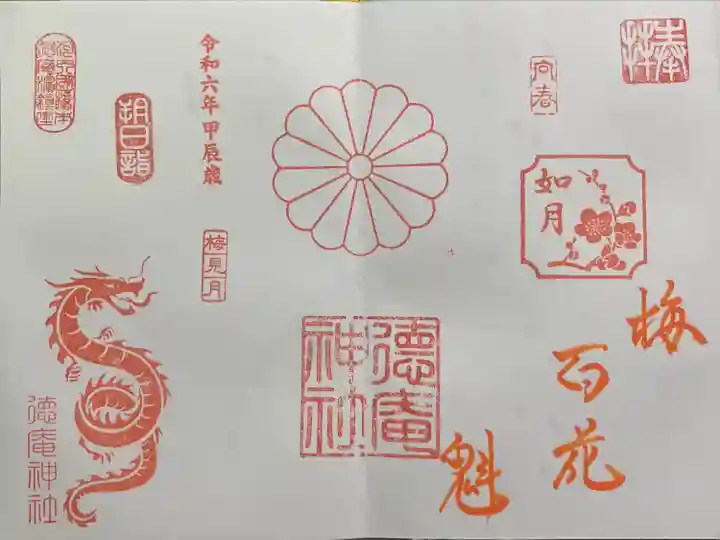 奉拝
向春
如月
梅
百花
魁
德庵
神社
令和六年甲辰歳
梅見月
朔日詣
德庵神社